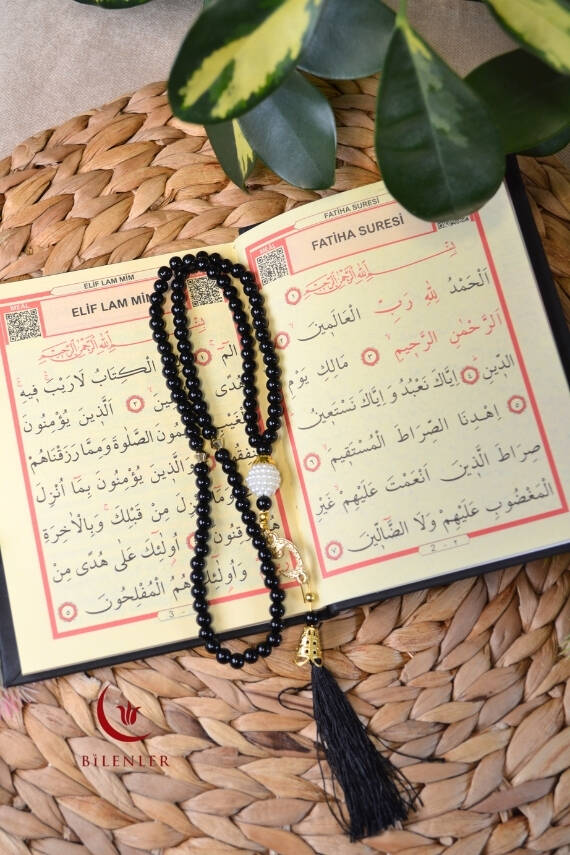 FATİHA SURESİ
MEAL
FATİHA SURESİ
بِسْمِ اللّٰهِ الرَّحْمٰنِ الرَّحِيمِ ١
اَلْحَمْدُ لِلّٰهِ رَبِّ الْعَالَمِينَ ٢
اَلرَّحْمٰنِ الرَّحِيمِ ٣ مَالِكِ يَوْمِ
الدِّينِ ٤ اِيَّاكَ نَعْبُدُ وَاِيَّاكَ نَسْتَعِينُ ٥
اِهْدِنَا الصِّرَاطَ الْمُسْتَقِيمَ ٦
صِرَاطَ الَّذِينَ اَنْعَمْتَ عَلَيْهِمْ غَيْرِ
الْمَغْضُوبِ عَلَيْهِمْ وَلَا الضَّالِّينَ ٧
2 - ٢
ELİF LAM MİM
MEAL
ELİF LAM MİM
بِسْمِ اللّٰهِ الرَّحْمٰنِ الرَّحِيمِ
الٓمٓ ١ الْكِتَابُ لَا رَيْبَ فِيهِ
هُدًى ٢ اَلَّذِينَ يُؤْمِنُونَ
الصَّلٰوةَ وَمِمَّا رَزَقْنَاهُمْ
وَالَّذِينَ يُؤْمِنُونَ بِمَا اُنْزِلَ
مِنْ قَبْلِكَ وَبِالْاٰخِرَةِ
اُولٰئِكَ عَلٰى هُدًى مِنْ
وَاُولٰئِكَ هُمُ الْمُفْلِحُونَ ٥
3 -
BİLENLER